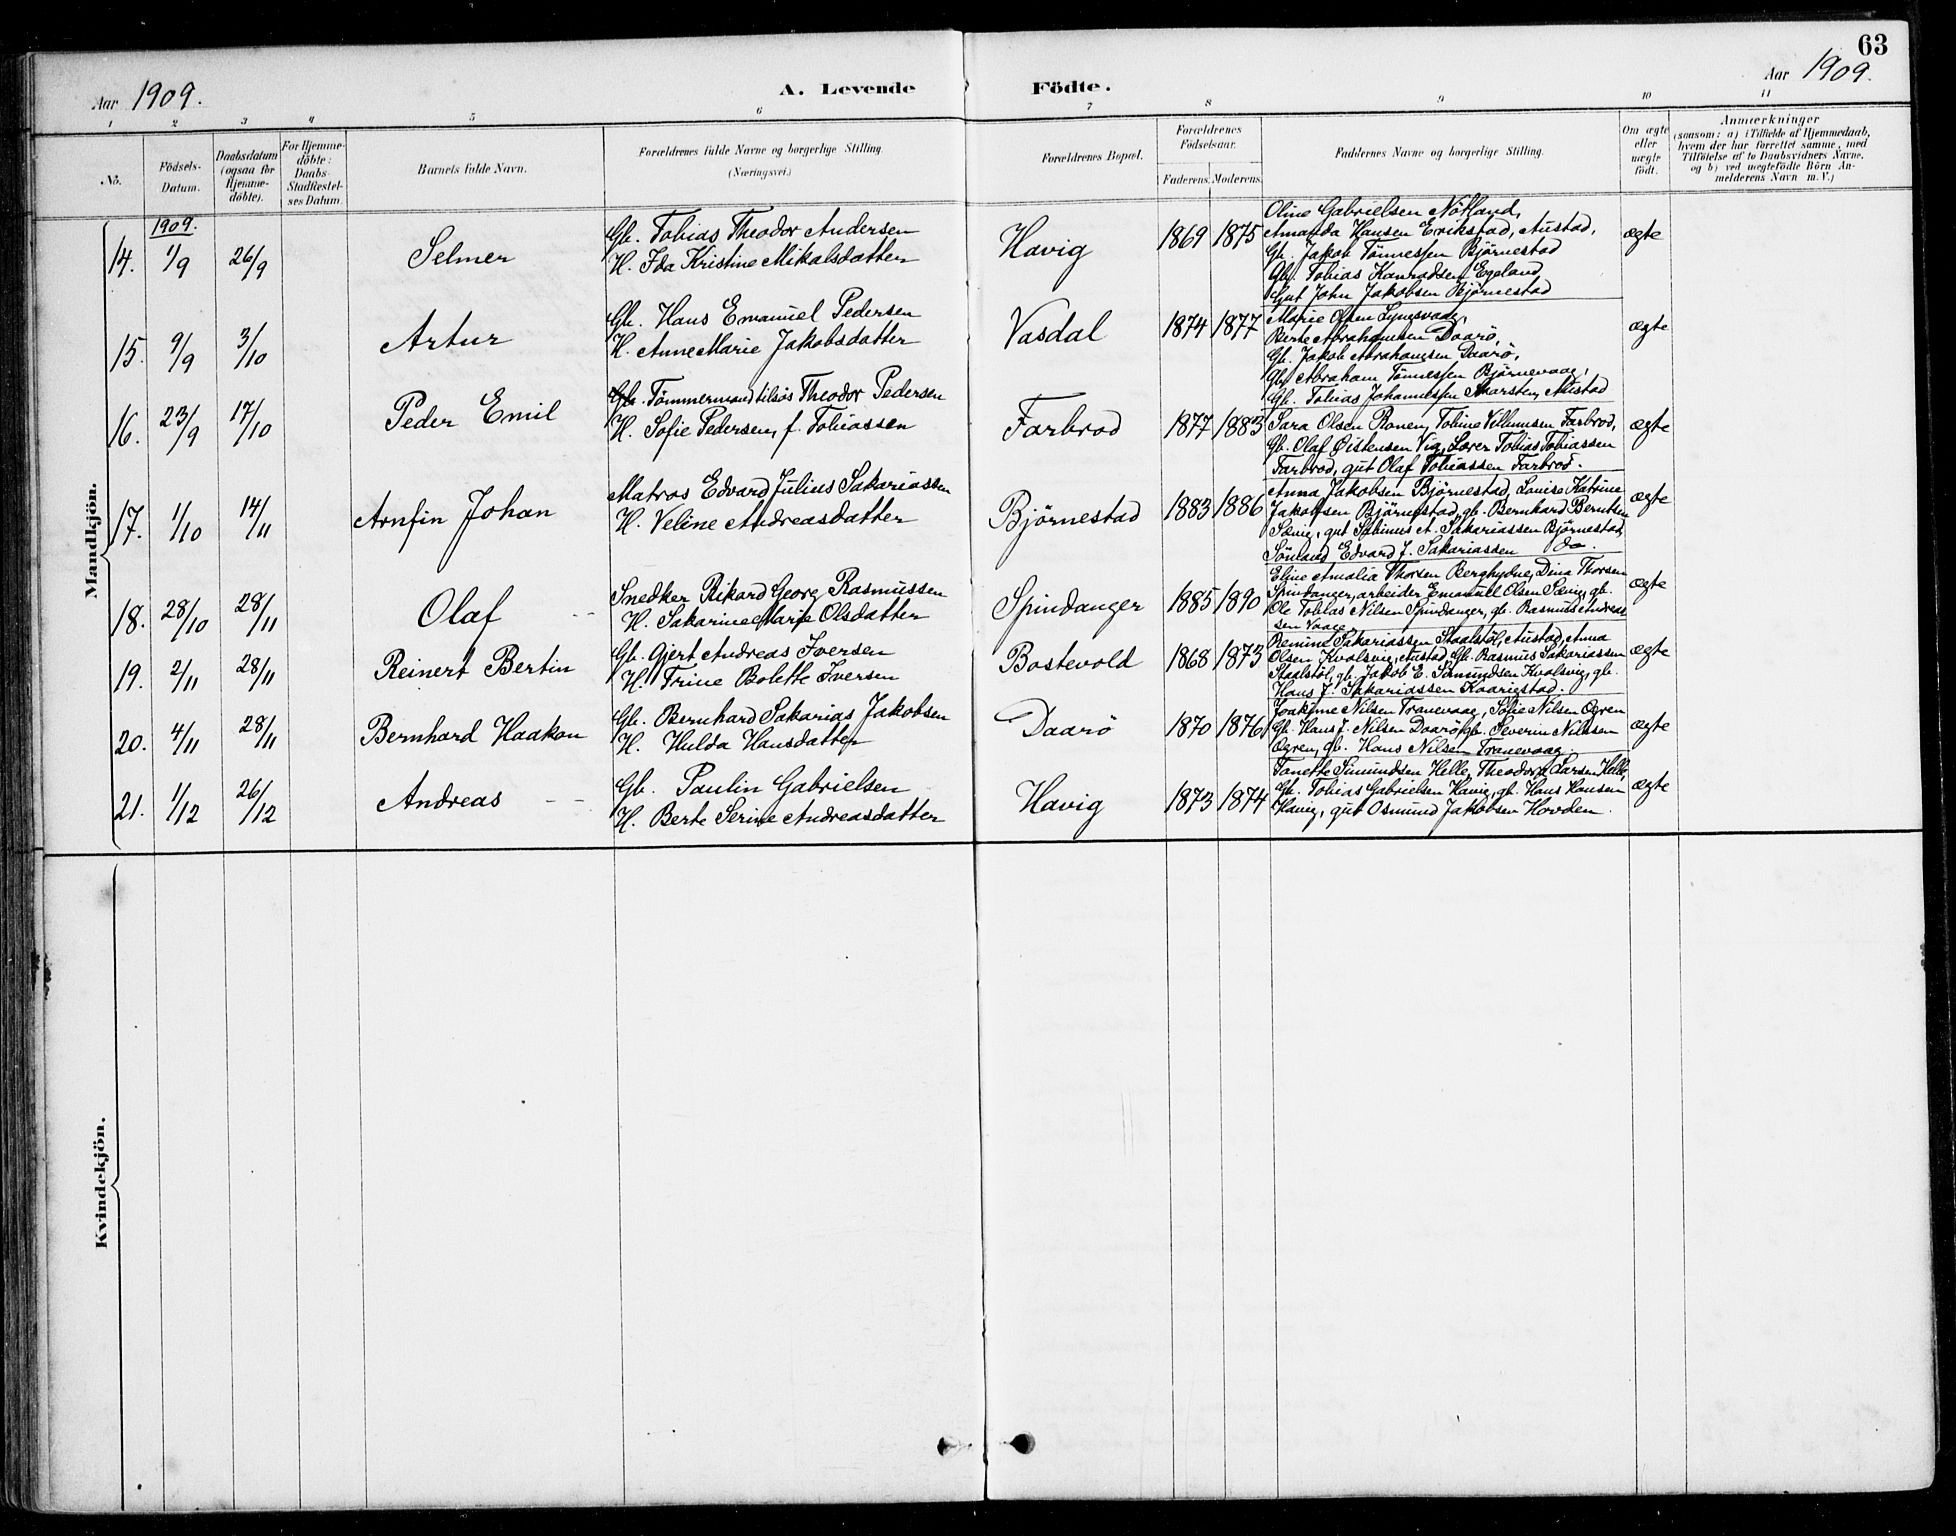 63
Aar 1909.
A. Levende
Födte.
Aar 1909.
1 2 3 4 5 6 7 8 9 10 11
No.
Födsels-
Datum.
Daabsdatum
(ogsaa for
Hjemme-
döbte).
For Hjemme-
döbte:
Daabs-
Stadfestel-
ses Datum.
Barnets fulde Navn.
Forældrenes fulde Navne og borgerlige Stilling.
(Næringsvei.)
Forældrenes Bopæl.
Forældrenes
Födselsaar.
Faderens. Moderens.
Faddernes Navne og borgerlige Stilling.
Om ægte
eller
uægte
födt.
Anmærkninger
(saasom: a) i Tilfælde af Hjemmedaab,
hvem der har forrettet samme, med
Tilföielse af to Daabsvidners Navne,
og b) ved uægtefödte Börn An-
melderens Navn m. V.)
Mandkjön.
1909.
14. 1/9 26/9 Selmer
Gb. Tobias Theodor Andersen
H. Ida Kristine Mikalsdatter
Havig 1869 1875
Oline Gabrielsen Nötland,
Amanda Hansen Erikstad, Austad,
Gb. Jakob Tönnessen Björnestad
Gb. Tobias Konradsen Egeland
Gut John Jakobsen Björnestad
ægte
15. 9/9 3/10 Artur
Gb. Hans Emanuel Pedersen
H. Anne Marie Jakobsdatter
Vasdal 1874 1877
Marie Olsen Lyngsvaag,
Berte Abrahamsen Daarö,
Gb. Jakob Abrahamsen Daarö,
Gb. Abraham Tönnessen Björnevaag,
Gb. Tobias Johannessen Skarsten, Austad
ægte
16. 23/9 17/10 Peder Emil
Gb. Tömmermand tilsös Theodor Pedersen
H. Sofie Pedersen, f. Tobiassen
Farbrod 1877 1883
Sara Olsen Ronen, Tobine Villumsen Farbrod,
Gb. Olaf Öistensen Vig, Lærer Tobias Tobiassen
Farbrod, gut Olaf Tobiassen Farbrod.
ægte
17. 1/10 14/11 Arnfin Johan
Matros Edvard Julius Sakariassen
H. Veline Andreasdatter
Björnestad 1883 1886
Anna Jakobsen Björnestad, Louise Katrine
Jakobsen Björnestad, gb. Bernhard Berntsen
Sævig, gut Sabinus A. Sakariassen Björnestad,
Sömand Edvard J. Sakariassen do.
ægte
18. 28/10 28/11 Olaf
Snedker Rikard Georg Rasmussen
H. Sakarine Marie Olsdatter
Spindanger 1885 1890
Eline Amalia Thorsen Berghydne, Dina Thorsen
Spindanger, arbeider Emanuel Olsen Sævig, gb.
Ole Tobias Nilsen Spindanger, gb. Rasmus Andreas
sen Vaage.
ægte
19. 2/11 28/11 Reinert Bertin
Gb. Gjert Andreas Iversen
H. Trine Bolette Iversen
Bostevold 1868 1873
Sakariassen Staalstöl, Austad, Anna
Olsen Kvalsvig, Austad, Gb. Rasmus Sakariassen
Staalstöl, gb. Jakob E. Kvalsvig, gb.
Hans J. Sakariassen Kaarigstad.
ægte
20. 4/11 28/11 Bernhard Haakon
Gb. Bernhard Sakarias Jakobsen
H. Hulda Hansdatter
Daarö 1870 1876
Joakime Nilsen Tranevaag, Sofie Nilsen Ogren
Gb. Hans J. Nilsen Daarö, gb. Severin Nilssen
Ogren, gb. Hans Nilsen Tranevaag.
ægte
21. 1/12 26/12 Andreas
Gb. Paulin Gabrielsen
H. Berte Serine Andreasdatter
Havig 1873 1874
Tanette Simundsen Helle, Theodora Larsen Helle,
Gb. Tobias Gabrielsen Havig, gb. Hans Hansen
Havig, gut Osmund Jakobsen Hovden.
ægte
Kvindekjön.